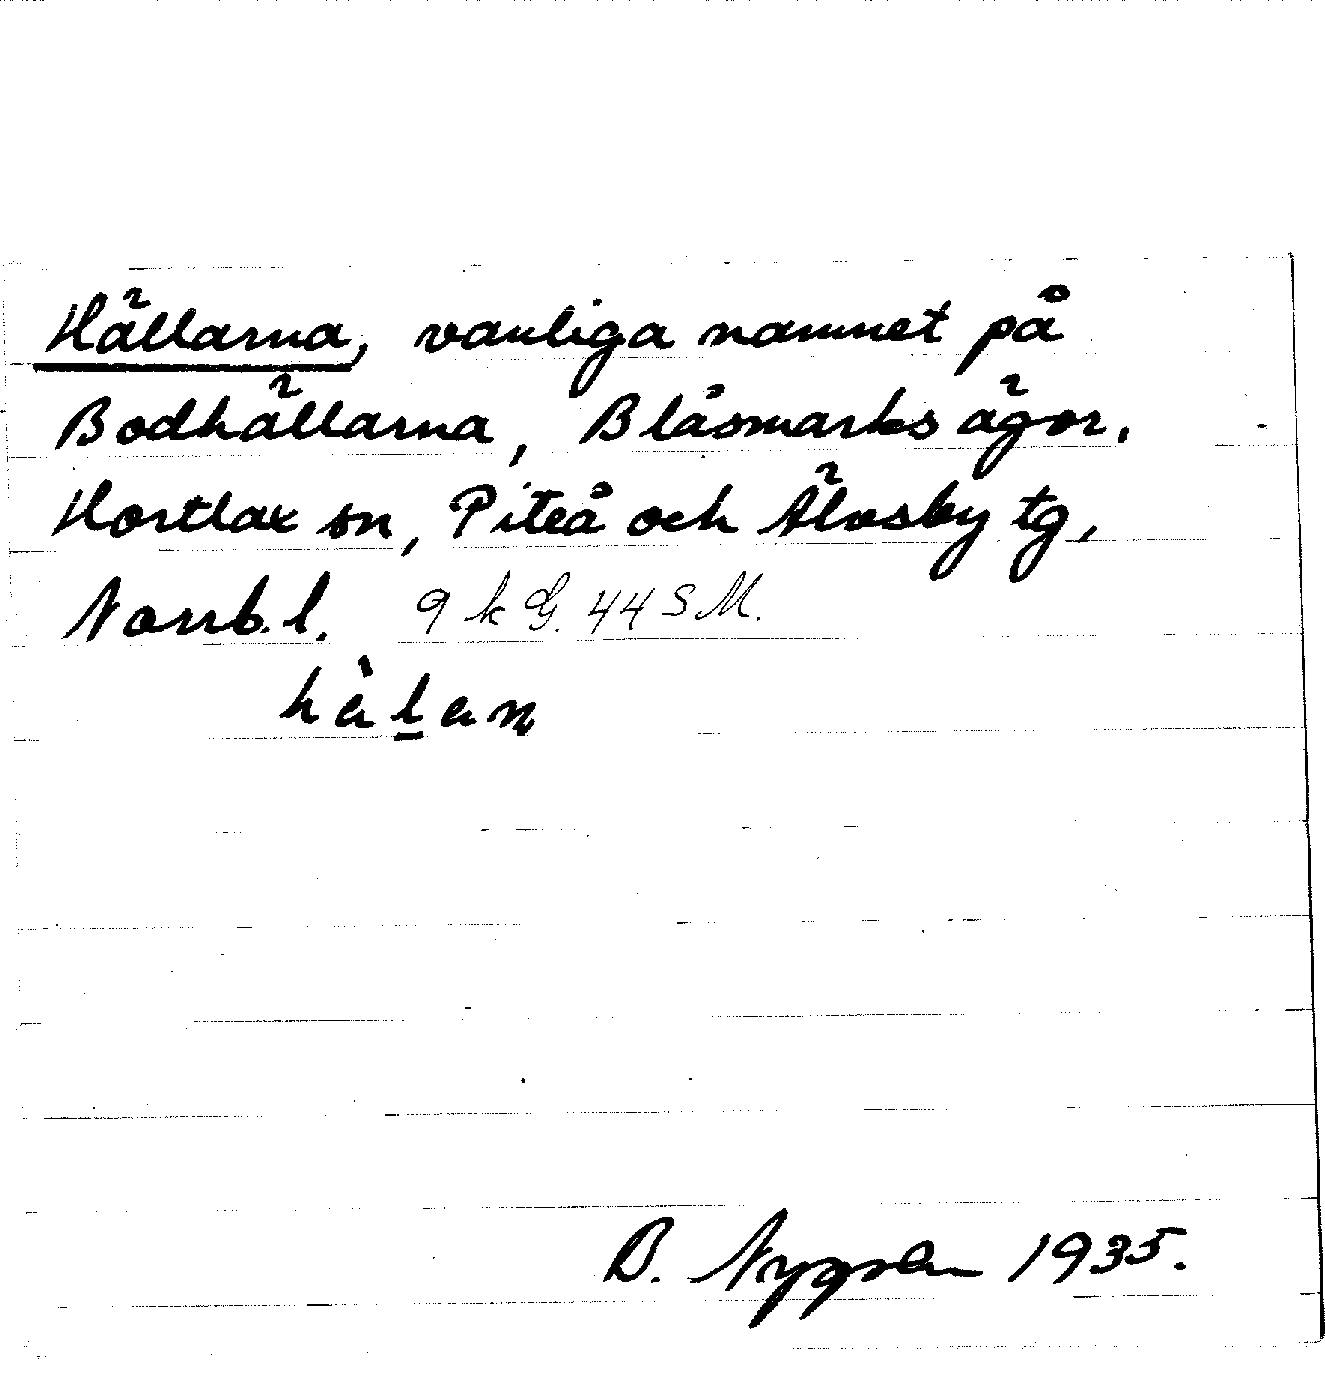 Hällarna, vanliga namnet på
Bodhällarna, Blåsmarks ägor,
Hortlax sn, Piteå och Älvsby tg,
Norrb.l. 9 k G. 44 S M.
hàl̲an
B. Nygren 1935.